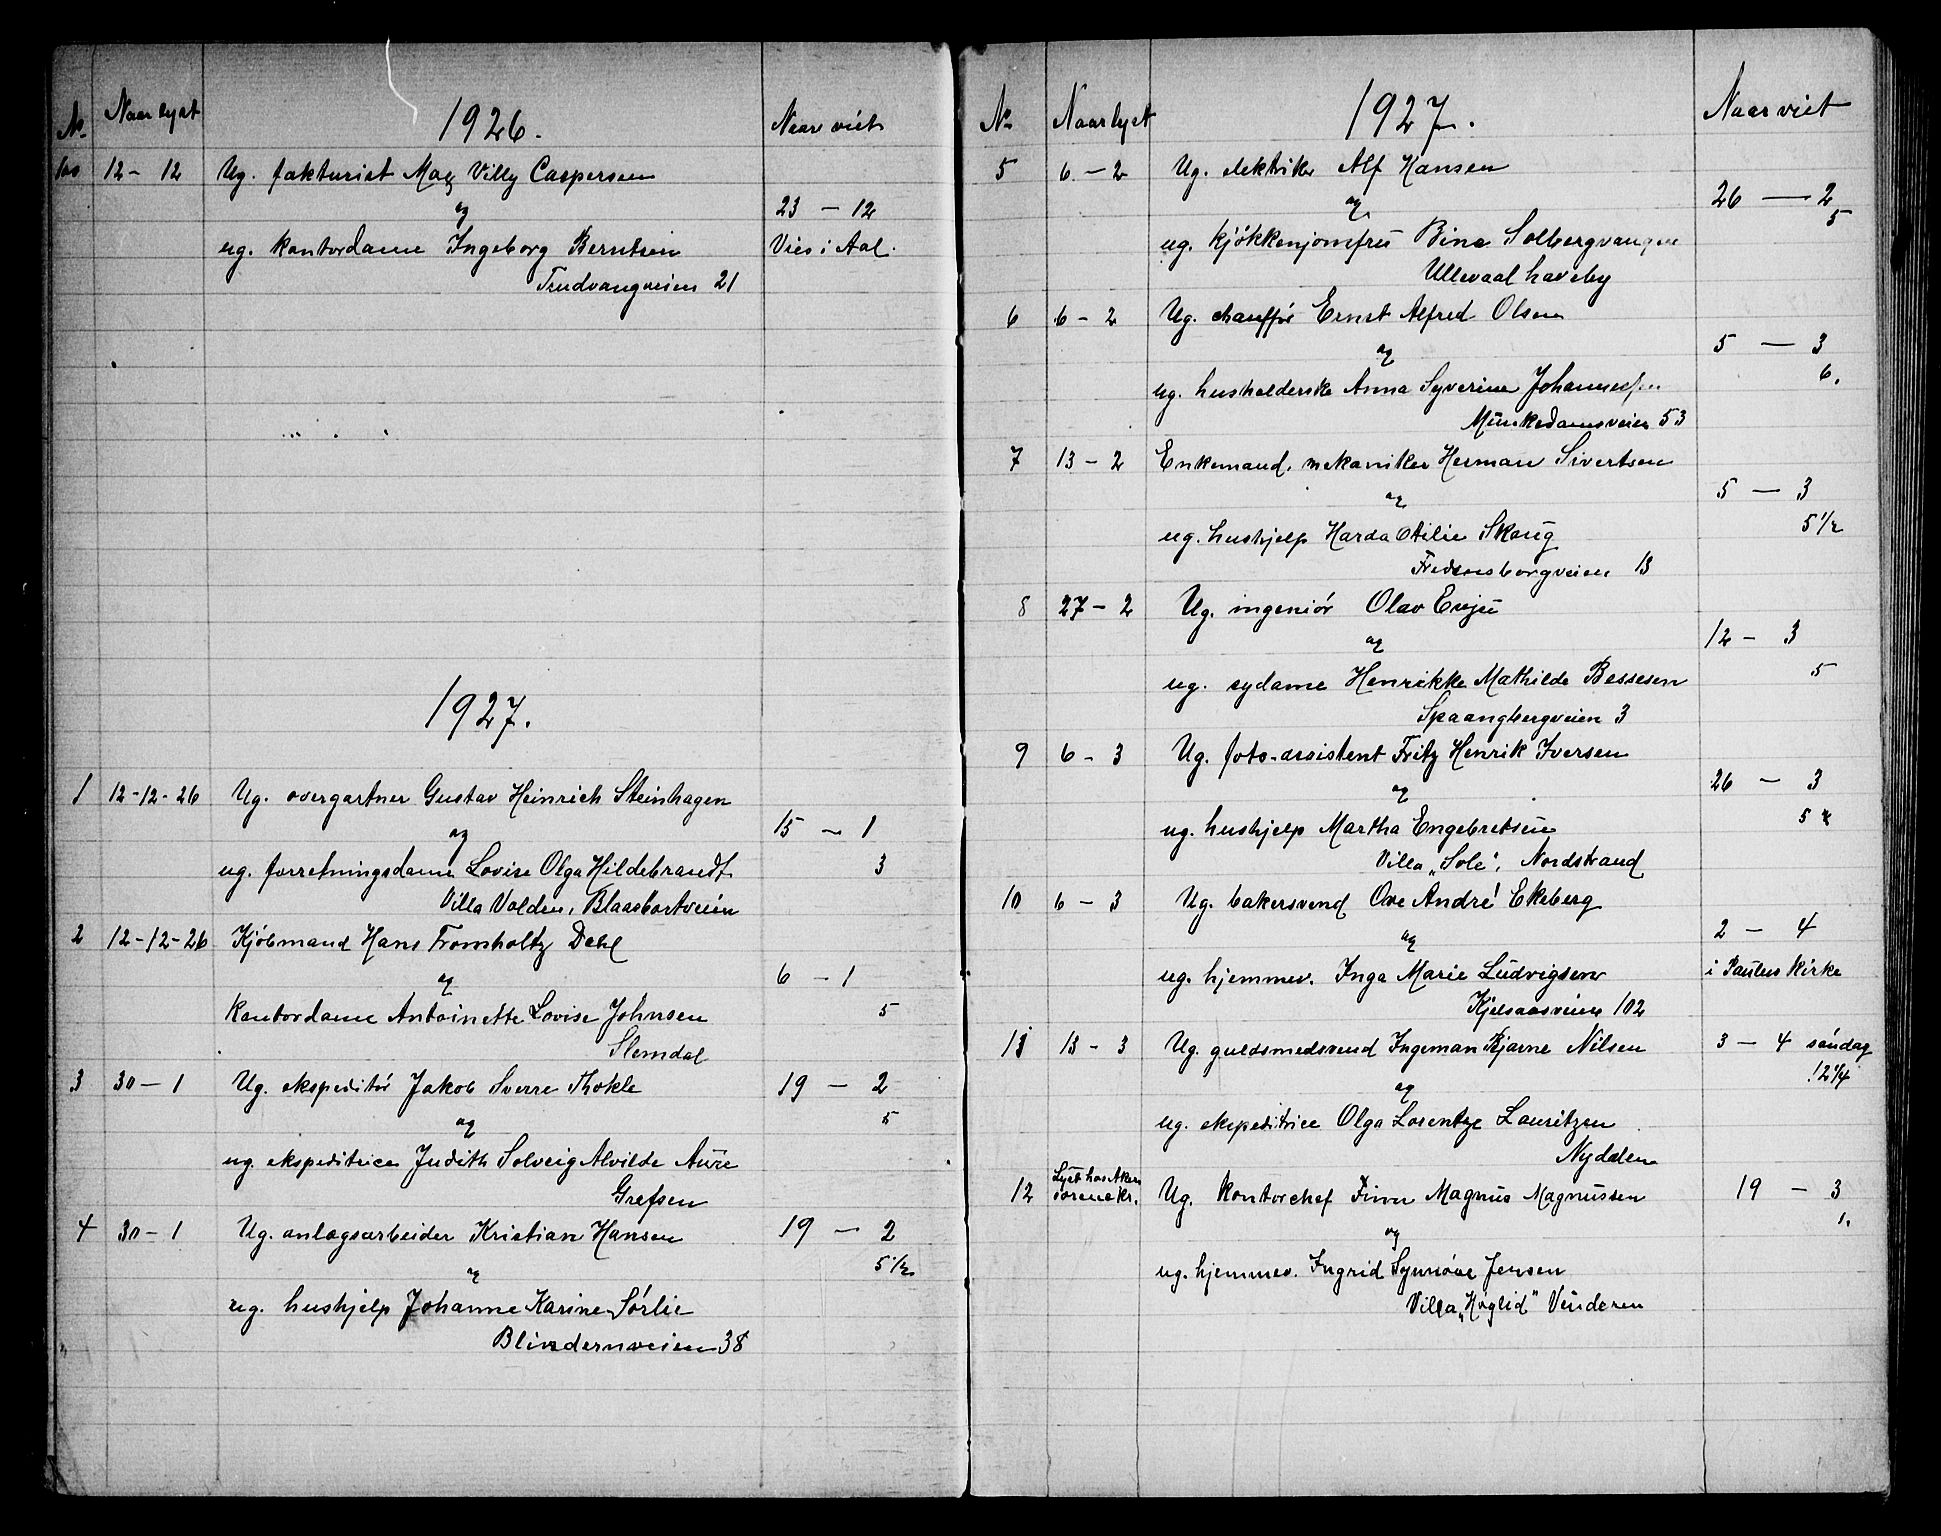 1926.
No. Naar lyst Naar viet
100 12 - 12 Ug. fakturist Max Villy Caspersen
og 23 - 12
ug. kontordame Ingeborg Berntsen Vies i Aal.
Trudvangveien 21
1927.
1 12-12-26 Ug. overgartner Gustav Heinrich Steinhagen
og 15 - 1
ug. forretningsdame Lovise Olga Hildebrandt 3
Villa Volden, Blaasbortveien
2 12-12-26 Kjöbmand Hans Fromholtz Dehl
og 6 - 1
Kontordame Antoinette Lovise Johnsen 5
Slemdal
3 30 - 1 Ug. ekspeditör Jakob Sverre Thokle 19 - 2
og 5
ug. ekspeditrice Judith Solveig Alvilde Aure
Grefsen
4 30 - 1 Ug. anlægsarbeider Kristian Hansen 19 - 2
og 5 1/2
ug. hushjelp Johanne Karine Sörlie
Blindernveien 38
1927.
No Naar lyst Naar viet
5 6 - 2 Ug. elektriker Alf Hansen
og 26 - 2
ug. kjökkenjomfru Bina Solbergvangen 5
Ullevaal haveby
6 6 - 2 Ug. chaufför Ernst Alfred Olsen
og 5 - 3
ug. husholderske Anna Syverine Johannessen 6.
Munkedamsveien 53
7 13 - 2 Enkemand, mekaniker Herman Sivertsen
og 5 - 3
ug. hushjelp Harda Otilie Skaug 5 1/2
Fredensborgveien 13
8 27 - 2 Ug. ingeniör Olav Evju
og 12 - 3
ug. sydame Henrikke Mathilde Bessesen 5
Spaangbergveien 3
9 6 - 3 Ug. foto-assistent Fritz Henrik Iversen
og 26 - 3
ug. hushjelp Martha Engebretsen 5
Villa "Sole", Nordstrand
10 6 - 3 Ug. bakersvend Ove André Ekeberg
og 2 - 4
ug. hjemmev. Inga Marie Ludvigsen i Paulus kirke
Kjelsaasveien 102
11 13 - 3 Ug. guldsmedsvend Ingeman Bjarne Nilsen 3 - 4 söndag
og 12 1/4
ug. ekspeditrice Olga Lorentze Lauritzen
Nydalen
12 Lyst hos Akers sorenskr. Ug. kontorchef Finn Magnus Magnussen 19 - 3
og 1.
ug. hjemmev. Ingrid Synnöve Jensen
Villa "Höglid" Vinderen